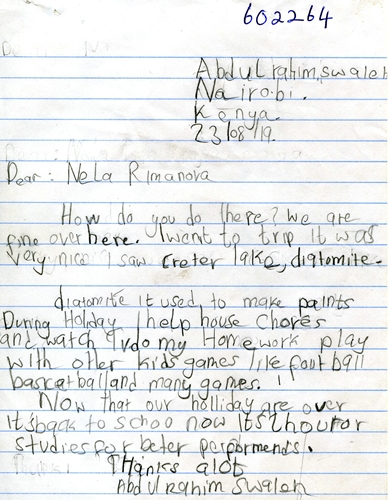 602264
Abdul rahim swaleh
Nairobi.
Kenya.
23/08/19.
Dear: Nela Rimanova
How do you do there? We are
fine over here. I went to trip it was
very nice I saw creter lake, diatomite.
diatomite it used to make paints
During Holiday I help house chores
and watch Tv do my Homework play
with other kids games like foot ball
bascat ball and many games.
Now that our holliday are over
it's back to school now its hour for
studies for beter performents.
Thanks alot
Abdul rahim Swaleh